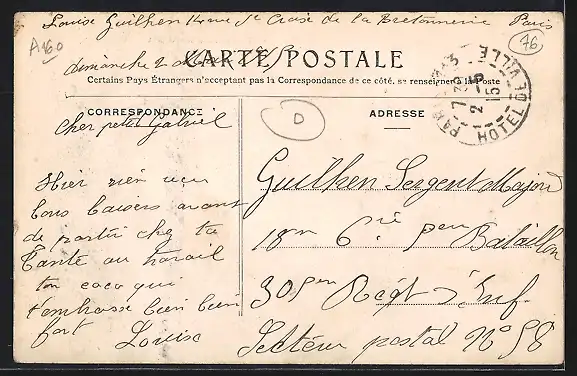 Louise Guilhen 14 rue St Croix de la Bretonnerie Paris
A160
76
dimanche 2
CARTE POSTALE
Certains Pays Étrangers n'acceptant pas la Correspondance de ce côté, se renseigner à la Poste
CORRESPONDANCE
D
ADRESSE
PARIS
7 30
2 - 5
15
HOTEL DE VILLE
Cher petit Gabriel
Hier rien reçu
bons baisers avant
de partir chez ta
tante au travail
ton coco qui
t'embrasse bien bien
fort Louise
Guilhen Sergent Major
18em Cie 6 Bataillon
305em Regt d'Inf.
Secteur postal No 58